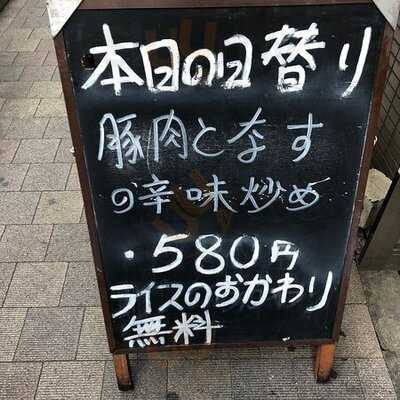 本日の日替り
豚肉となす
の辛味炒め
・580円
ライスのおかわり
無料